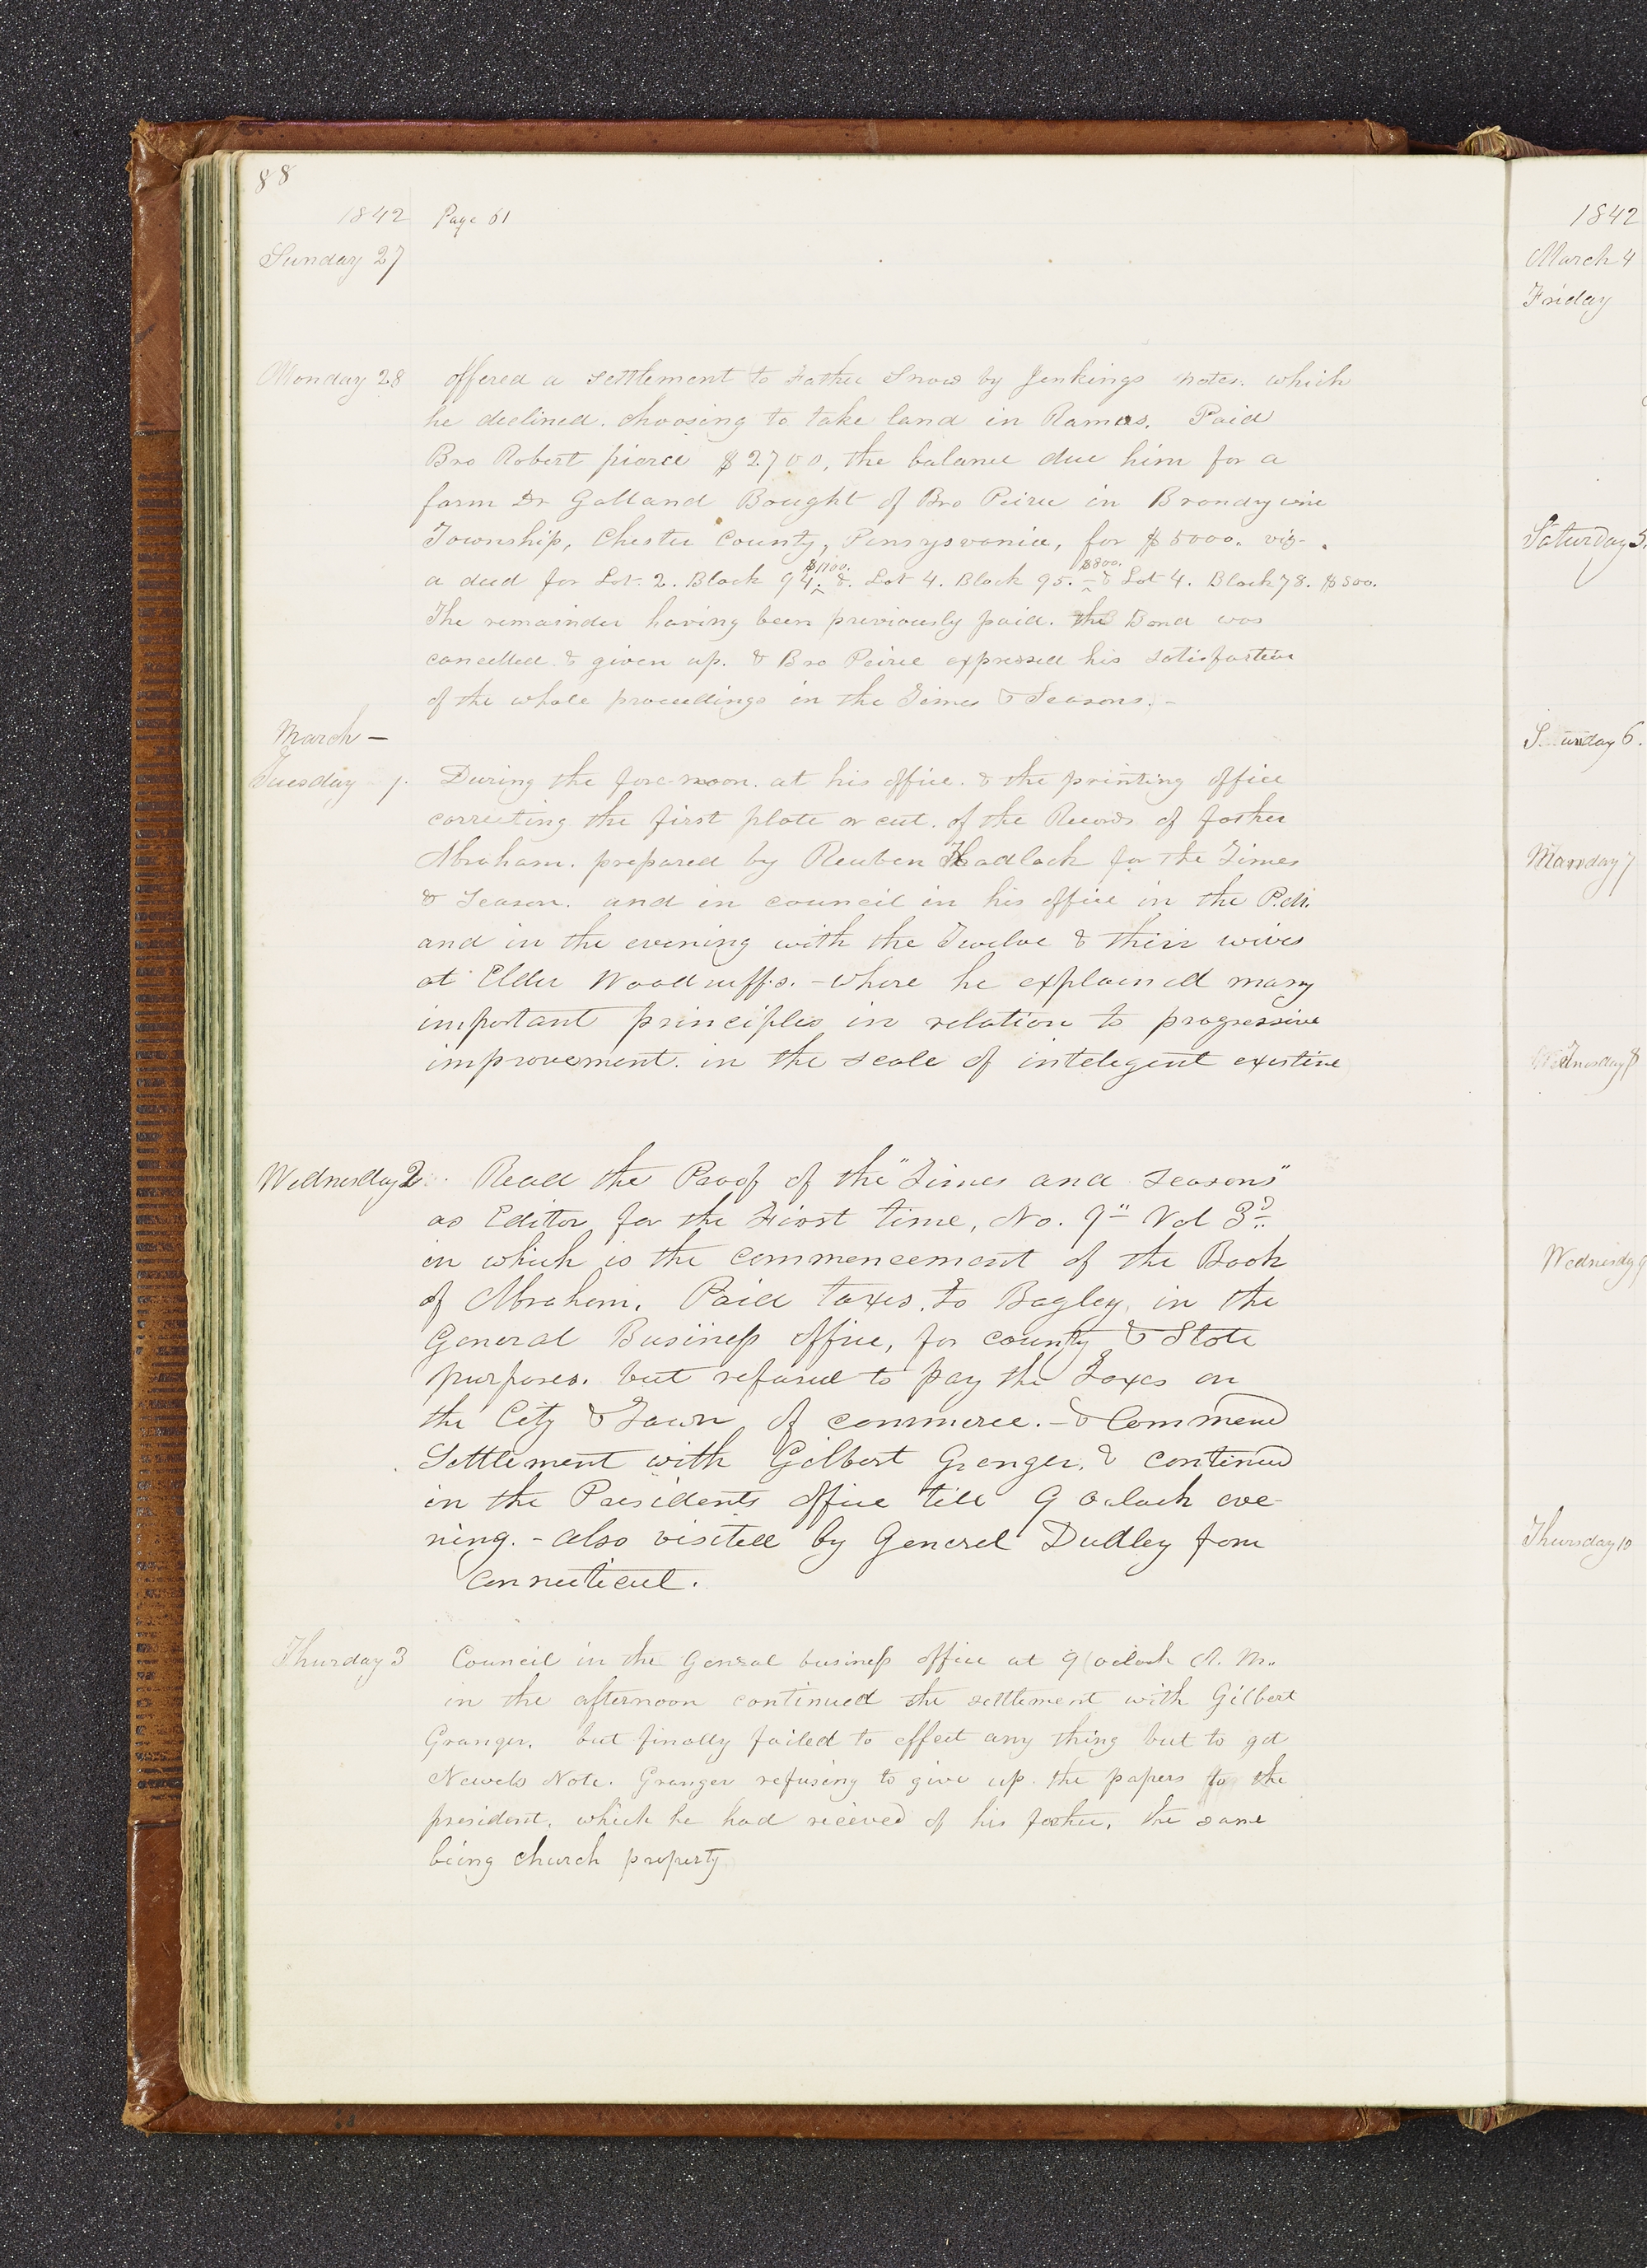 88
1842 Page 61
Sunday 27
Monday 28 offered a settlement to Father Snow by Jenkings notes. which
he declined. choosing to take land in Ramus. Paid
Bro Robert pierce $2700, the balance due him for a
farm Dr Galland Bought of Bro Peirce in Brandywine
Township, Chester County, Pensysvania, for $5000. viz-
$1100. $800.
a deed for Lot. 2. Block 94. & Lot 4. Block 95. - & Lot 4. Block 78. $800.
The remainder having been previously paid. the Bond was
cancelled & given up. & Bro Peirce expressed his satisfaction
of the whole proceedings in the Times & Seasons. -
March -
Tuesday 1. During the fore-noon. at his office. & the printing office
correcting the first plate or cut. of the Records of father
Abraham. prepared by Reuben Hadlock for the Times
& Season. and in council in his office in the P.M.
and in the evening with the Twelve & their wives
at Elder Woodruff's. - where he explained many
important principles in relation to progressive
improvement. in the scale of intelegent existince
Wednesday 2. Read the Proof of the "Times and Seasons"
as Editor for the First time, No. 9" Vol 3d.
in which is the commencement of the Book
of Abraham. Paid taxes. to Bagley, in the
General Business office, for county & State
purposes. but refused to pay the Taxes on
the City & Town of commerce. - & Commencd
Settlement with Gilbert Granger. & continued
in the Presidents office till 9 oclock eve-
ning. - also visited by General Dudley from
Connecticut.
Thurday 3 Council in the General business office at 9 oclock A. M..
in the afternoon continued the settlement with Gilbert
Granger. but finally failed to effect any thing but to get
Newels Note. Granger refusing to give up. the papers to the
president, which he had recieved of his father, the same
being church property
1842
March 4
Friday
Saturday 5.
Sunday 6.
Monday 7
Tuesday 8
Wednesday 9
Thursday 10